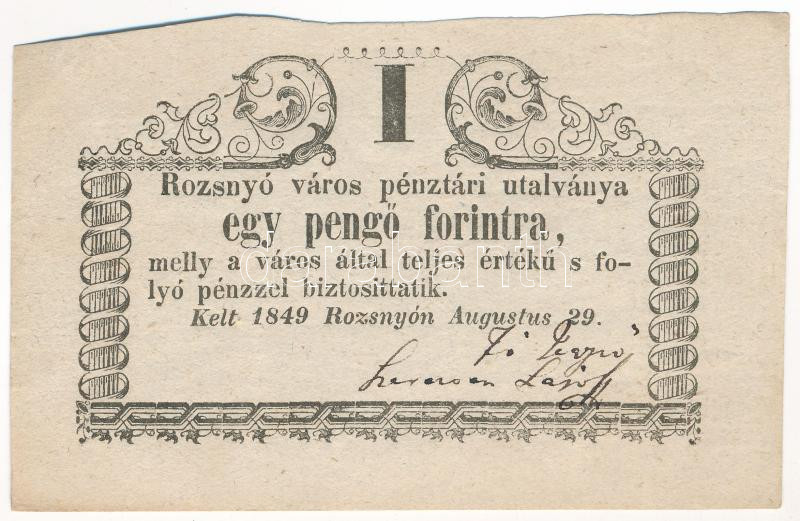 I
Rozsnyó város pénztári utalványa
egy pengő forintra,
melly a város által teljes értékű s fo-
lyó pénzzel biztosíttatik.
Kelt 1849 Rozsnyón Augustus 29.
darabanth